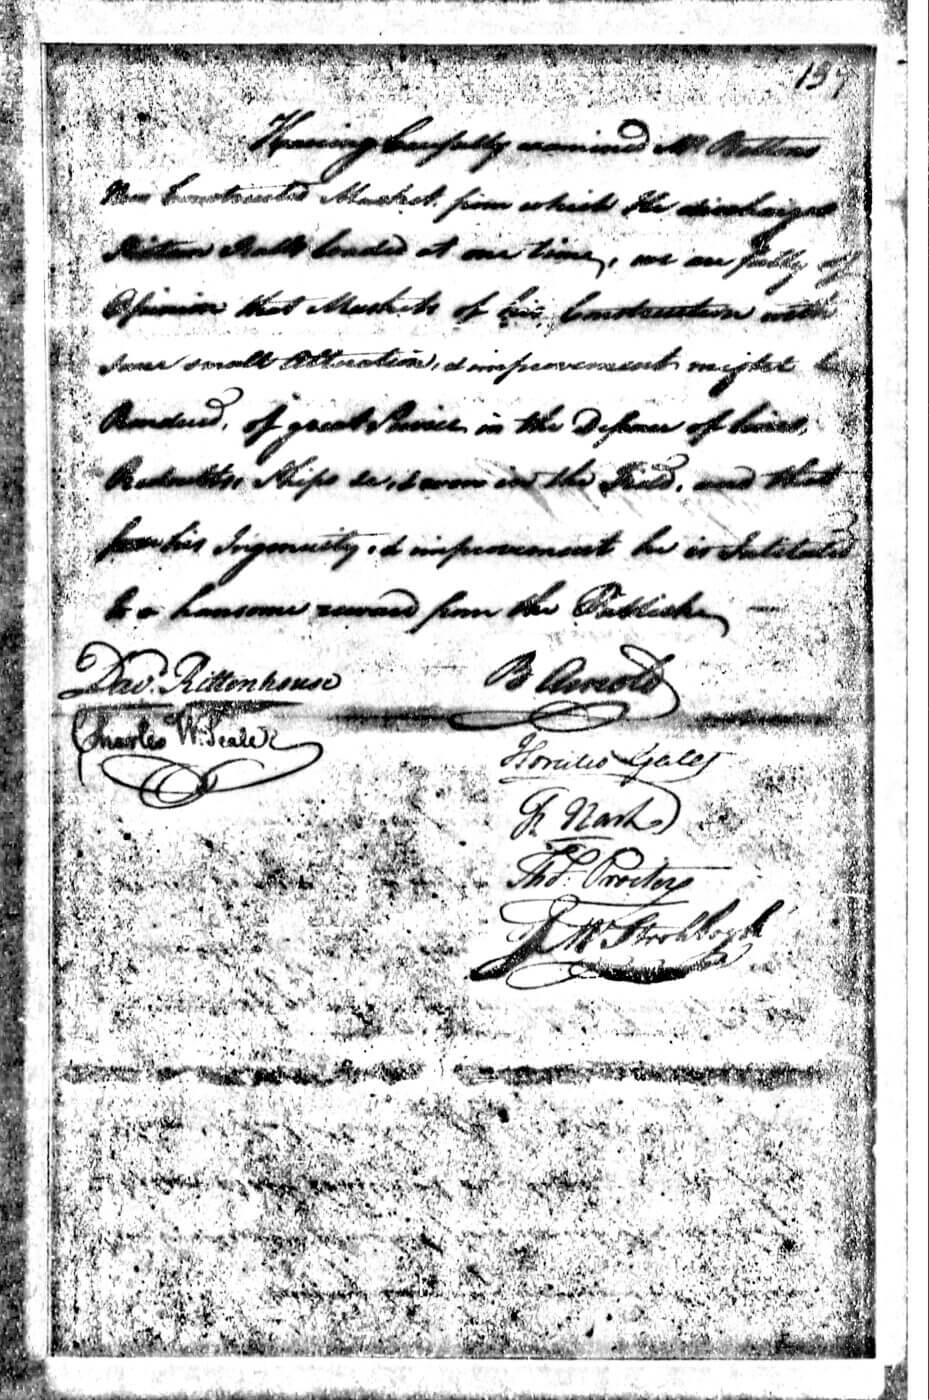 137
Having Carefully examined Mr Beltons
New Constructed Musket, from which He discharges
Sixteen Balls loaded at one time, we are fully of
Opinion that Muskets of his Construction with
some small Alteration, & improvement might be
Rendered, of great Service in the Defence of lives,
Redoubts, Ships &c, & even in the Field, and that
for his Ingenuity, & improvement he is Intituled
to a hansome reward from the Publick
Davd. Rittenhouse
B Arnold
Charles W. Peale
Horatio Gates
Fr Nash
Thos. Procter